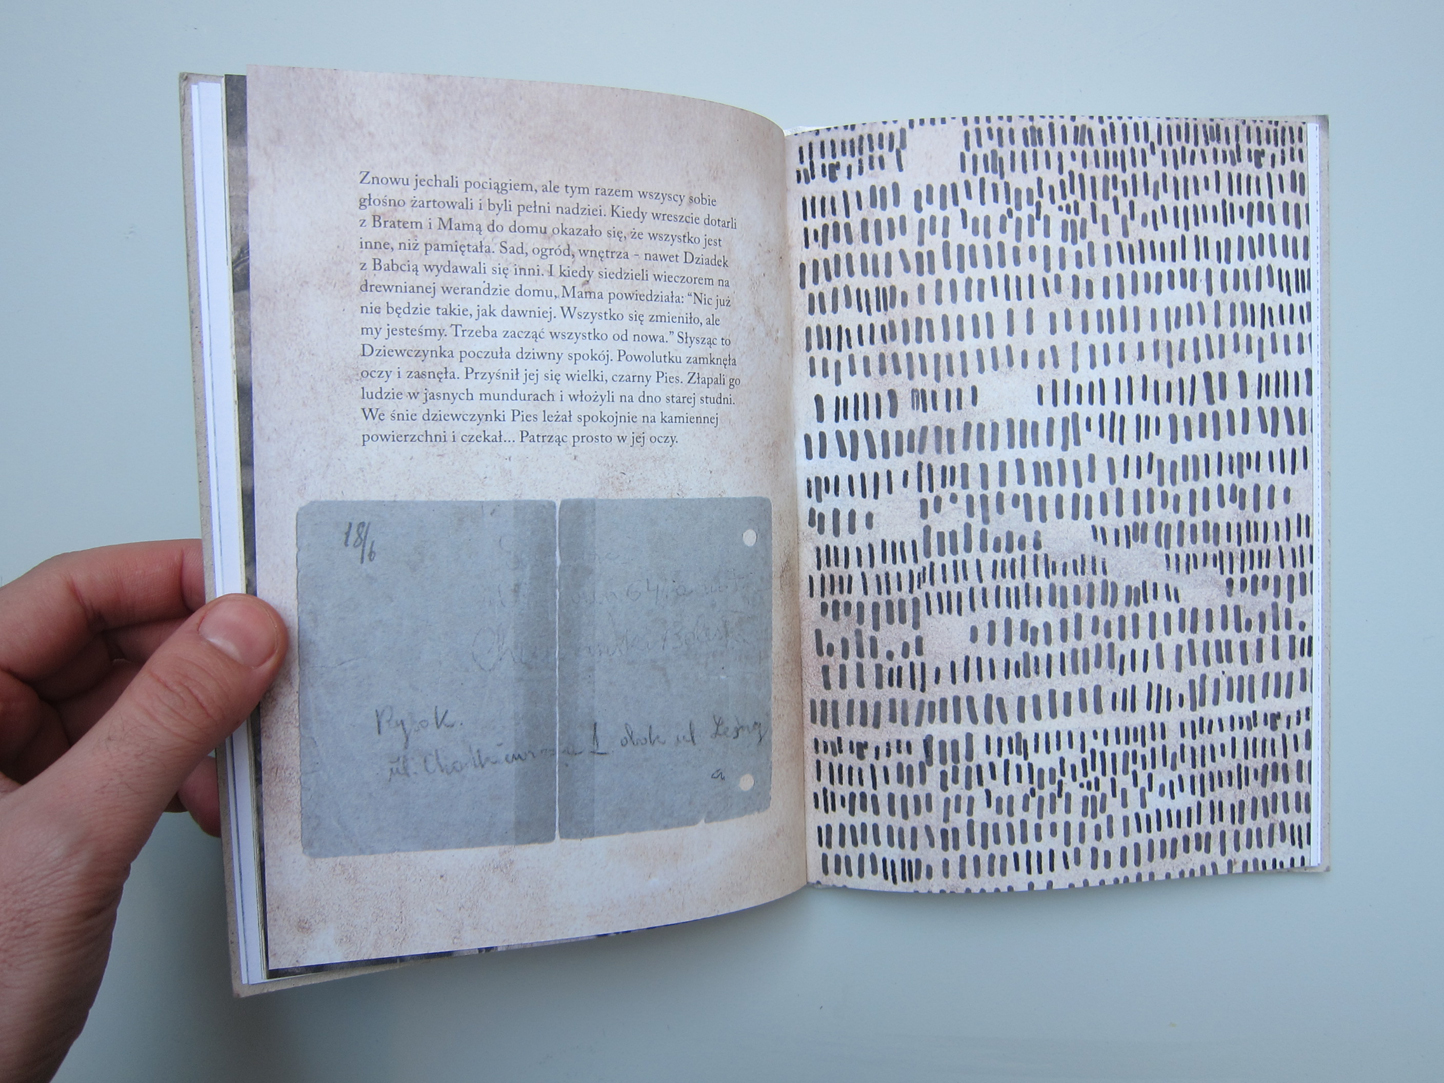 Znowu jechali pociągiem, ale tym razem wszyscy sobie
głośno żartowali i byli pełni nadziei. Kiedy wreszcie dotarli
z Bratem i Mamą do domu okazało się, że wszystko jest
inne, niż pamiętała. Sad, ogród, wnętrza - nawet Dziadek
z Babcią wydawali się inni. I kiedy siedzieli wieczorem na
drewnianej werandzie domu, Mama powiedziała: “Nic już
nie będzie takie, jak dawniej. Wszystko się zmieniło, ale
my jesteśmy. Trzeba zacząć wszystko od nowa.” Słysząc to
Dziewczynka poczuła dziwny spokój. Powolutku zamknęła
oczy i zasnęła. Przyśnił jej się wielki, czarny Pies. Złapali go
ludzie w jasnych mundurach i włożyli na dno starej studni.
We śnie dziewczynki Pies leżał spokojnie na kamiennej
powierzchni i czekał... Patrząc prosto w jej oczy.
18/6
ul. 1 obok ul